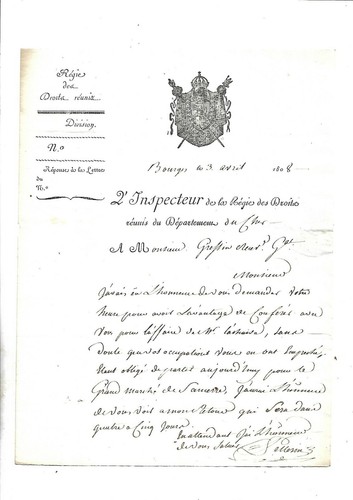 Régie
des
Droits réunis.
Division.
N.º
Réponses à les Lettres
du
N.º
Bourges le 3 avril 1808
L'Inspecteur de la Régie des Droits
réunis du Département du Cher
A Monsieur
Monsieur
J'avais eu l'honneur de vous demander votre
heure pour avoir l'avantage de Conférer avec
Vous pour l'affaire de Mr sans
doute que vos occupations vous en ont Empêché,
Etant obligé de partir aujourd'huy pour le
Grand marché de Sancerre, J'aurai L'honneur
de vous voir a mon Retour qui Sera dans
quatre a Cinq Jours.
En attendant J'ai L'honneur
de vous Saluer